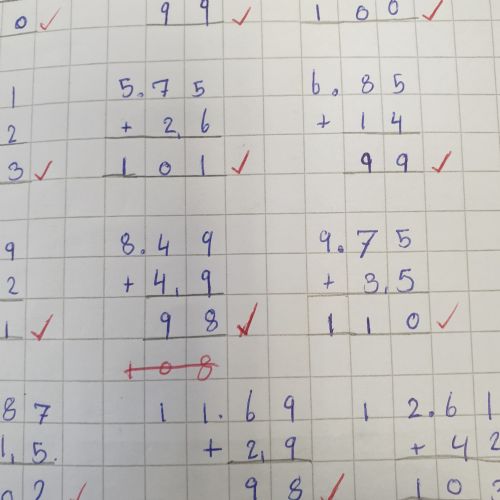 0 ✓ 99 ✓ 100 ✓
1 5.75 6.85
2 + 2,6 + 14
3 ✓ 101 ✓ 99 ✓
9 8.49 9.75
2 + 4,9 + 3,5
1 ✓ 98 ✓ 110 ✓
108
87 11.69 12.61
1,5. + 2,9 + 42
02 ✓ 98 ✓ 10